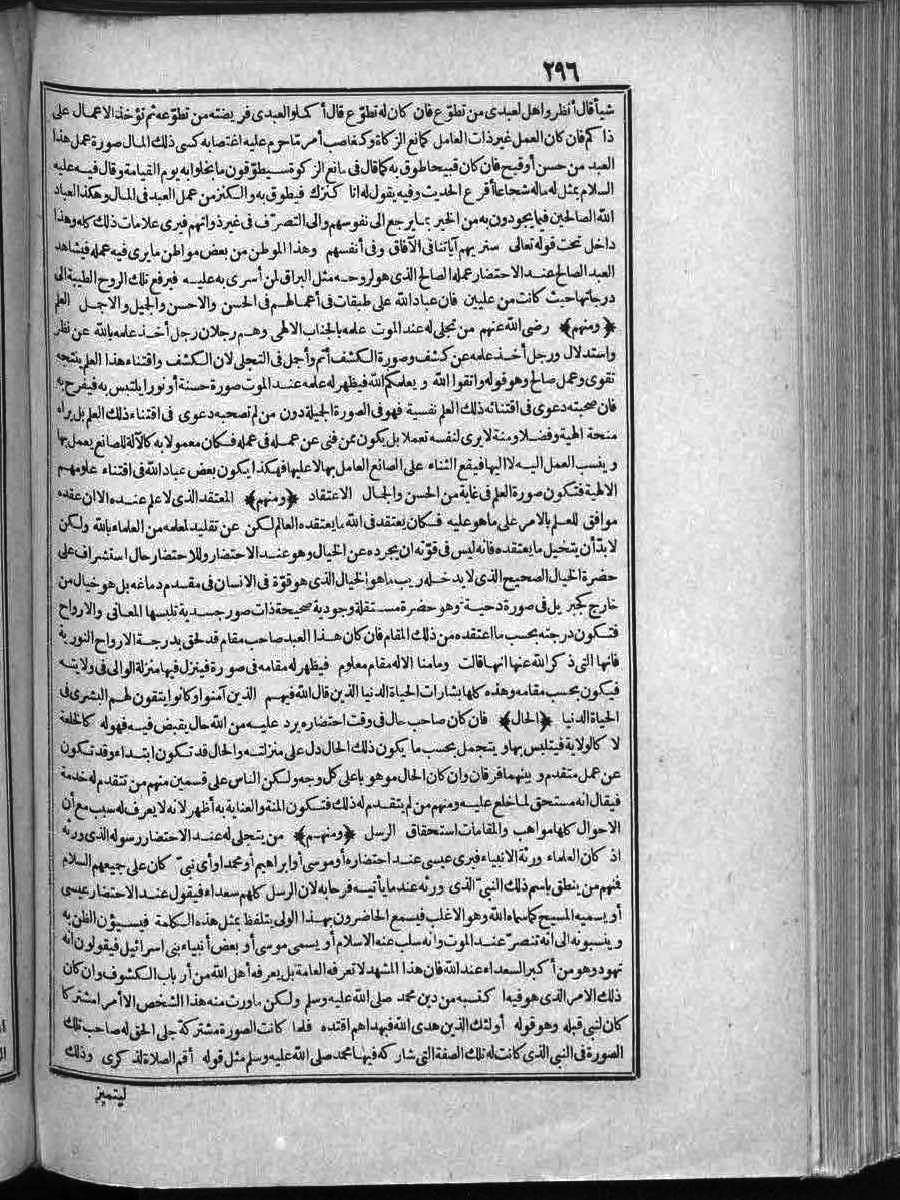 ٢٩٦
شيأ قال أنظروا هل لعبدى من تطوّع فان كان له تطوّع قال أكملوا لعبدى فريضته من تطوّعه ثم تؤخذ الاعمال على
ذا كم فان كان العمل غير ذات العامل كمانع الزكاة وكغاصب أمر مّا حرم عليه اغتصابه كسى ذلك المال صورة عمل هذا
العبد من حسن أو قبح فان كان قبيحا طوّق به كما قال فى مانع الزكوة سيطوّقون ما بخلوا به يوم القيامة وقال فيه عليه
السلام يمثل له ماله شجاعا أقرع الحديث وفيه يقول له انا كنزك فيطوق به والكنز من عمل العبد فى المال وهكذا العباد
الله الصالحين فيما يجودون به من الخير بما يرجع الى نفوسهم والى التصرّف فى غير ذواتهم فيرى علامات ذلك كله وهذا
داخل تحت قوله تعالى سنريهم آياتنا فى الآفاق وفى أنفسهم وهذا الموطن من بعض مواطن ما يرى فيه عمله فيشاهد
العبد الصالح عند الاحتضار عمله الصالح الذى هو لروحه مثل البراق لمن أسرى به عليه فيرفع تلك الروح الطيبة الى
درجاتها حيث كانت من عليين فان عباد الله على طبقات فى أعمالهم فى الحسن والاحسن والجميل والاجمل العلم
﴿ومنهم﴾ رضى الله عنهم من تجلى له عند الموت علمه بالجناب الالهى وهم رجلان رجل أخذ علمه بالله عن نظر
واستدلال ورجل أخذ علمه عن كشف وصورة الكشف أتم وأجل فى التجلى لان الكشف واقتناء هذا العلم ينتجه
تقوى وعمل صالح وهو قوله واتقوا الله ويعلمكم الله فيظهر له علمه عند الموت صورة حسنة أو نورا يلتبس به فيفرح به
فان صحبته دعوى فى اقتنائه ذلك العلم نفسية فهو فى الصورة الجميلة دون من لم تصحبه دعوى فى اقتناء ذلك العلم بل يراه
منحة الهية وفضلا ومنة لا يرى لنفسه تعملا بل يكون ممن فنى عن عمله فى عمله فكان معمولا به كالآلة للصانع يعمل بها
وينسب العمل اليه لا اليها فيقع الثناء على الصانع العامل بها لا عليها فهكذا يكون بعض عباد الله فى اقتناء علومهم
الالهية فتكون صورة العلم فى غاية من الحسن والجمال الاعتقاد ﴿ومنهم﴾ المعتقد الذى لا علم عنده الا ان عقده
موافق للعلم بالامر على ما هو عليه فكان يعتقد فى الله ما يعتقده العالم لكن عن تقليد لمعلمه من العلماء بالله ولكن
لا بدّ أن يتخيل ما يعتقده فانه ليس فى قوّته ان يجرده عن الخيال وهو عند الاحتضار وللاحتضار حال استشراف على
حضرة الخيال الصحيح الذى لا يدخله ريب ما هو الخيال الذى هو قوّة فى الانسان فى مقدم دماغه بل هو خيال من
خارج كجبريل فى صورة دحية وهو حضرة مستقلة وجودية صحيحة ذات صور جسدية تلبسها المعانى والارواح
فتكون درجته بحسب ما اعتقده من ذلك المقام فان كان هذا العبد صاحب مقام قد لحق بدرجة الارواح النورية
فانها التى ذكر الله عنها انها قالت وما منا الا له مقام معلوم فيظهر له مقامه فى صورة فينزل فيها منزلة الوالى فى ولايته
فيكون بحسب مقامه وهذه كلها بشارات الحياة الدنيا الذين قال الله فيهم الذين آمنوا وكانوا يتقون لهم البشرى فى
الحياة الدنيا ﴿الحال﴾ فان كان صاحب حال فى وقت احتضاره يرد عليه من الله حال يقبض فيه فهو له كالخلعة
لا كالولاية فيتلبس بها ويتجمل بحسب ما يكون ذلك الحال دل على منزلته والحال قد تكون ابتداء وقد تكون
عن عمل متقدم وبينهما فرقان وان كان الحال موهوبا على كل وجه ولكن الناس على قسمين منهم من تتقدم له خدمة
فيقال انه مستحق لما خلع عليه ومنهم من لم يتقدم له ذلك فتكون المنة والعناية به أظهر لانه لا يعرف له سبب مع أن
الاحوال كلها مواهب والمقامات استحقاق الرسل ﴿ومنهم﴾ من يتجلى له عند الاحتضار رسوله الذى ورثه
اذ كان العلماء ورثة الانبياء فيرى عيسى عند احتضاره أو موسى أو ابراهيم أو محمدا أو أى نبىّ كان على جميعهم السلام
فمنهم من ينطق باسم ذلك النبىّ الذى ورثه عند ما يأتيه فرحا به لان الرسل كلهم سعداء فيقول عند الاحتضار عيسى
أو يسميه المسيح كما سماه الله وهو الاغلب فيسمع الحاضرون بهذا الولى يتلفظ بمثل هذه الكلمة فيسيؤن الظن به
وينسبونه الى انه تنصر عند الموت وانه سلب عنه الاسلام أو يسمى موسى أو بعض أنبياء بنى اسرائيل فيقولون انه
تهود وهو من أكبر السعداء عند الله فان هذا المشهد لا تعرفه العامة بل يعرفه أهل الله من أرباب الكشوف وان كان
ذلك الامر الذى هو فيه ا كتسبه من دين محمد صلى الله عليه وسلم ولكن ما ورث منه هذا الشخص الا أمرا مشتركا
كان لنبى قبله وهو قوله أولئك الذين هدى الله فبهداهم اقتده فلما كانت الصورة مشتركة جلى الحق له صاحب تلك
الصورة فى النبى الذى كانت له تلك الصفة التى شاركه فيها محمد صلى الله عليه وسلم مثل قوله أقم الصلاة لذكرى وذلك
ليتميز